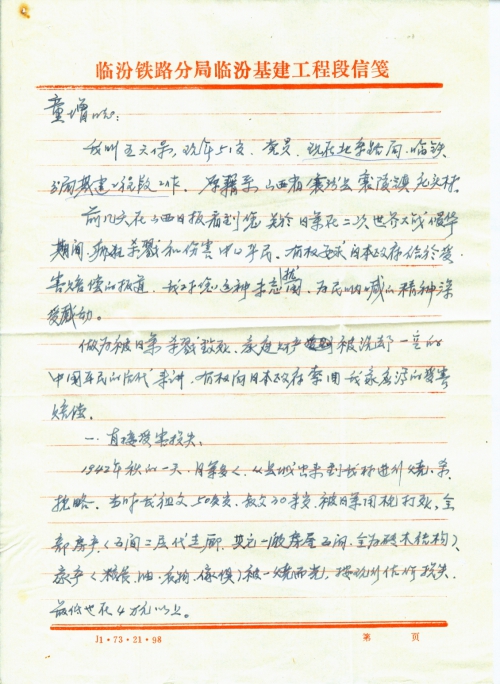 临汾铁路分局临汾基建工程段信笺
童增同志:
我叫王文保,现年51岁,党员,现在北京路局临铁
分局基建工程段工作。原籍系山西省襄汾县襄陵镇
前几天在山西日报看到您关于日军在二次世界大战侵华
期间,疯狂杀戮和伤害中国平民,有权要求日本政府给于受
害赔偿的报道,我对您这种为民呐喊的精神深
受感动。
做为被日军杀戮致死、家庭财产被洗劫一空的
中国平民的后代来讲,有权向日本政府索回我家应得的受害
赔偿。
一、直接受害损失、
1942年秋的一天,日军多人,从县城出来到我村进行烧、杀、
抢略。当时我祖父50多岁,叔父20来岁,被日军用枪打死,全
部房产(五间二层代走廊,其它一般房屋五间,全为砖木结构)、
家产(粮食、油、衣物、傢俱)被一烧而光,按现行估价损失
最低也在4万元以上。
J1·73·21·98
第 页